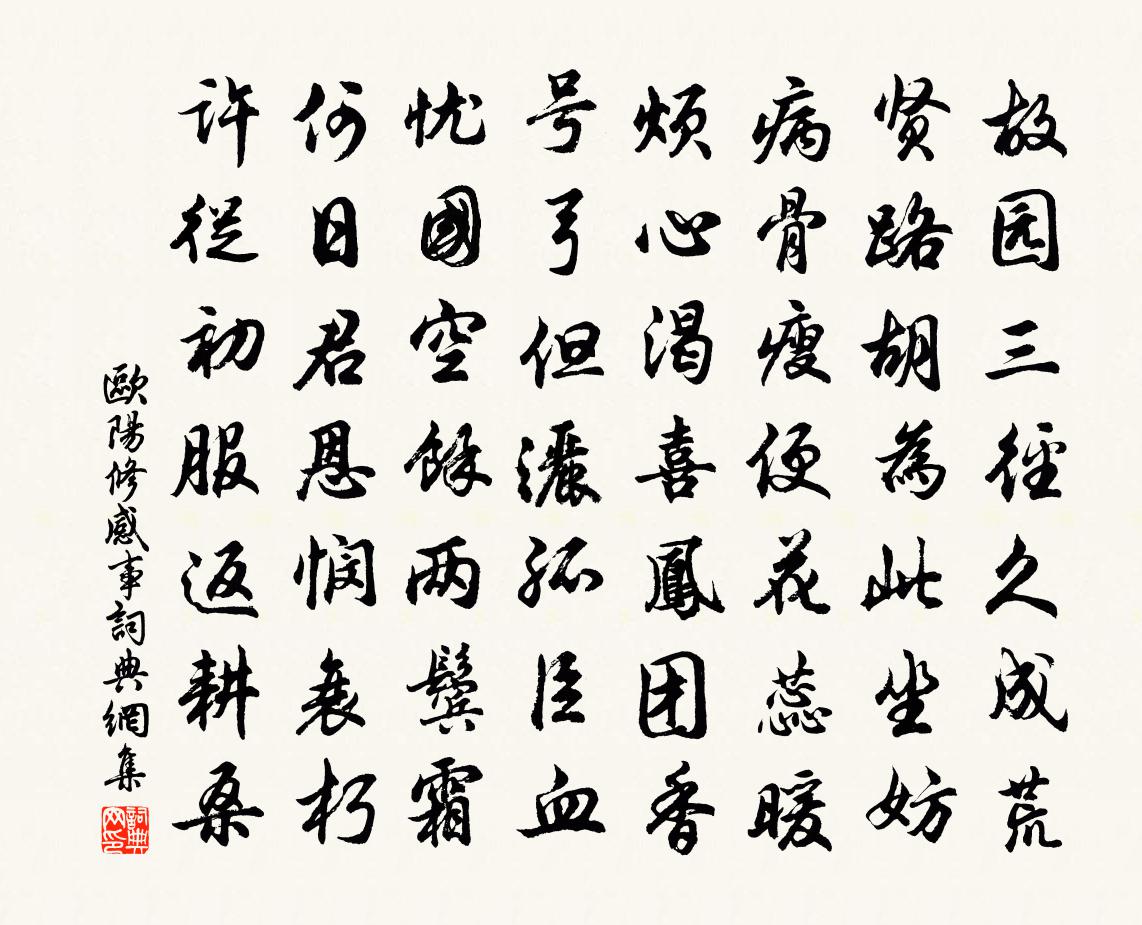 故园三径久成荒
贤路胡為此坐妨
病骨瘦便花蕊暖
烦心渴喜鳳团香
号弓但灑孤臣血
忧國空餘两鬓霜
何日君恩悯衰朽
许從初服返耕桑
歐陽修感事詞典網集
詞典网印